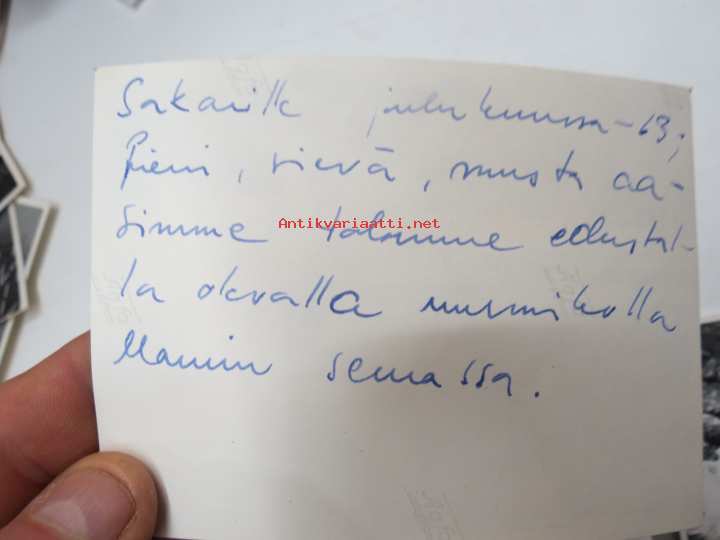 Sakarille joulukuussa -63;
Pieni, sievä, musta aa-
simme talomme edustal-
la olevalla nurmikolla
Mamin seurassa.
Antikvariaatti.net